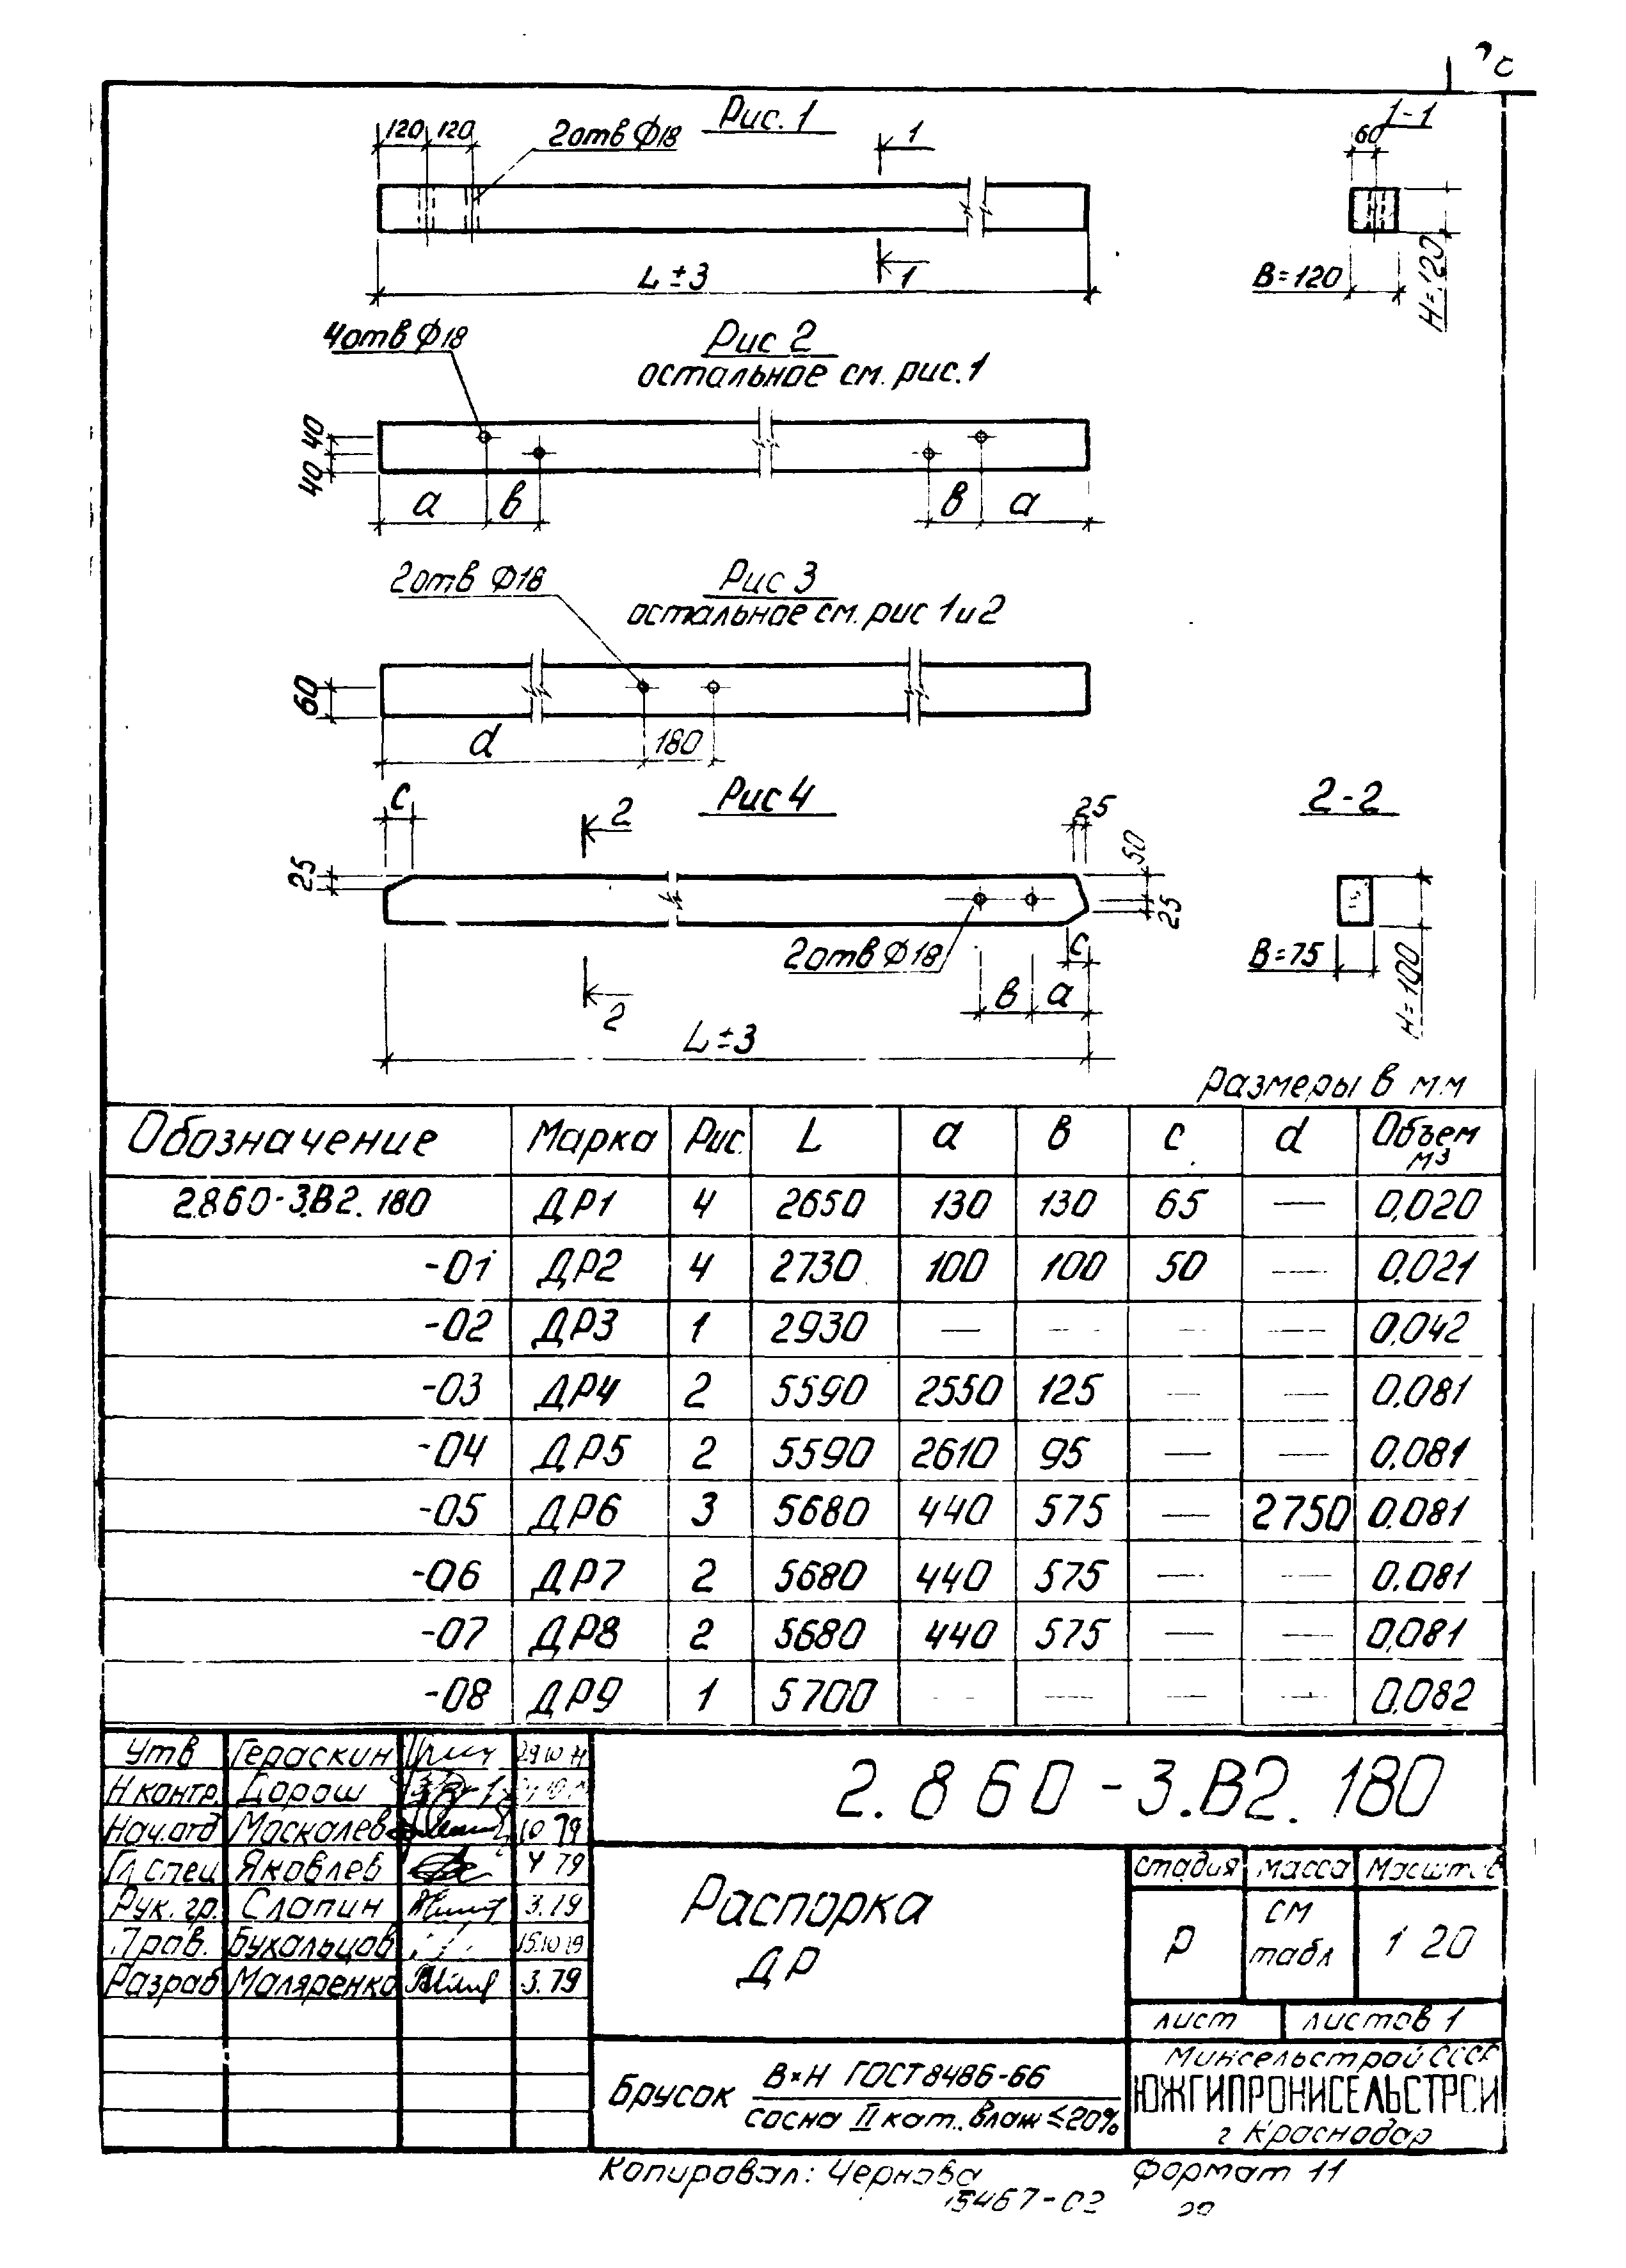 Рис. 1
1-1
120 120
2отв Ф18
1
60
L ± 3
1
В=120
Н=120
4отв Ф18
Рис 2
остальное см. рис.1
40
40
а в
в а
2отв Ф18
Рис 3
остальное см. рис 1 и 2
60
d
180
с
2
Рис 4
25
2-2
25
50
25
2отв Ф18
с
В=75
Н=100
в а
2
L ± 3
размеры в мм
Обозначение Марка Рис. L а в с d Объем м3
2.860-3.В2.180 ДР1 4 2650 130 130 65 — 0,020
-01 ДР2 4 2730 100 100 50 — 0,021
-02 ДР3 1 2930 — — — — 0,042
-03 ДР4 2 5590 2550 125 — — 0,081
-04 ДР5 2 5590 2610 95 — — 0,081
-05 ДР6 3 5680 440 575 — 2750 0,081
-06 ДР7 2 5680 440 575 — — 0.081
-07 ДР8 2 5680 440 575 — — 0,081
-08 ДР9 1 5700 — — — — 0,082
Утв Гераскин
Н контр. Дорош
Нач.отд Маскалев 10 79
Гл спец Яковлев 4 79
Рук. гр. Слапин 3.79
Пров. Бухальцов 15.10 79
Разраб Маляренко 3.79
2.860-3.В2.180
Распорка
ДР
стадия масса Масштаб
Р см табл 1 20
лист листов 1
Брусок В×Н ГОСТ 8486-66
сосна II кат., влаж ≤20%
Минсельстрой СССР
ЮЖГИПРОНИСЕЛЬСТРОЙ
г Краснодар
Копировал: Чернова
формат 11
15467-02